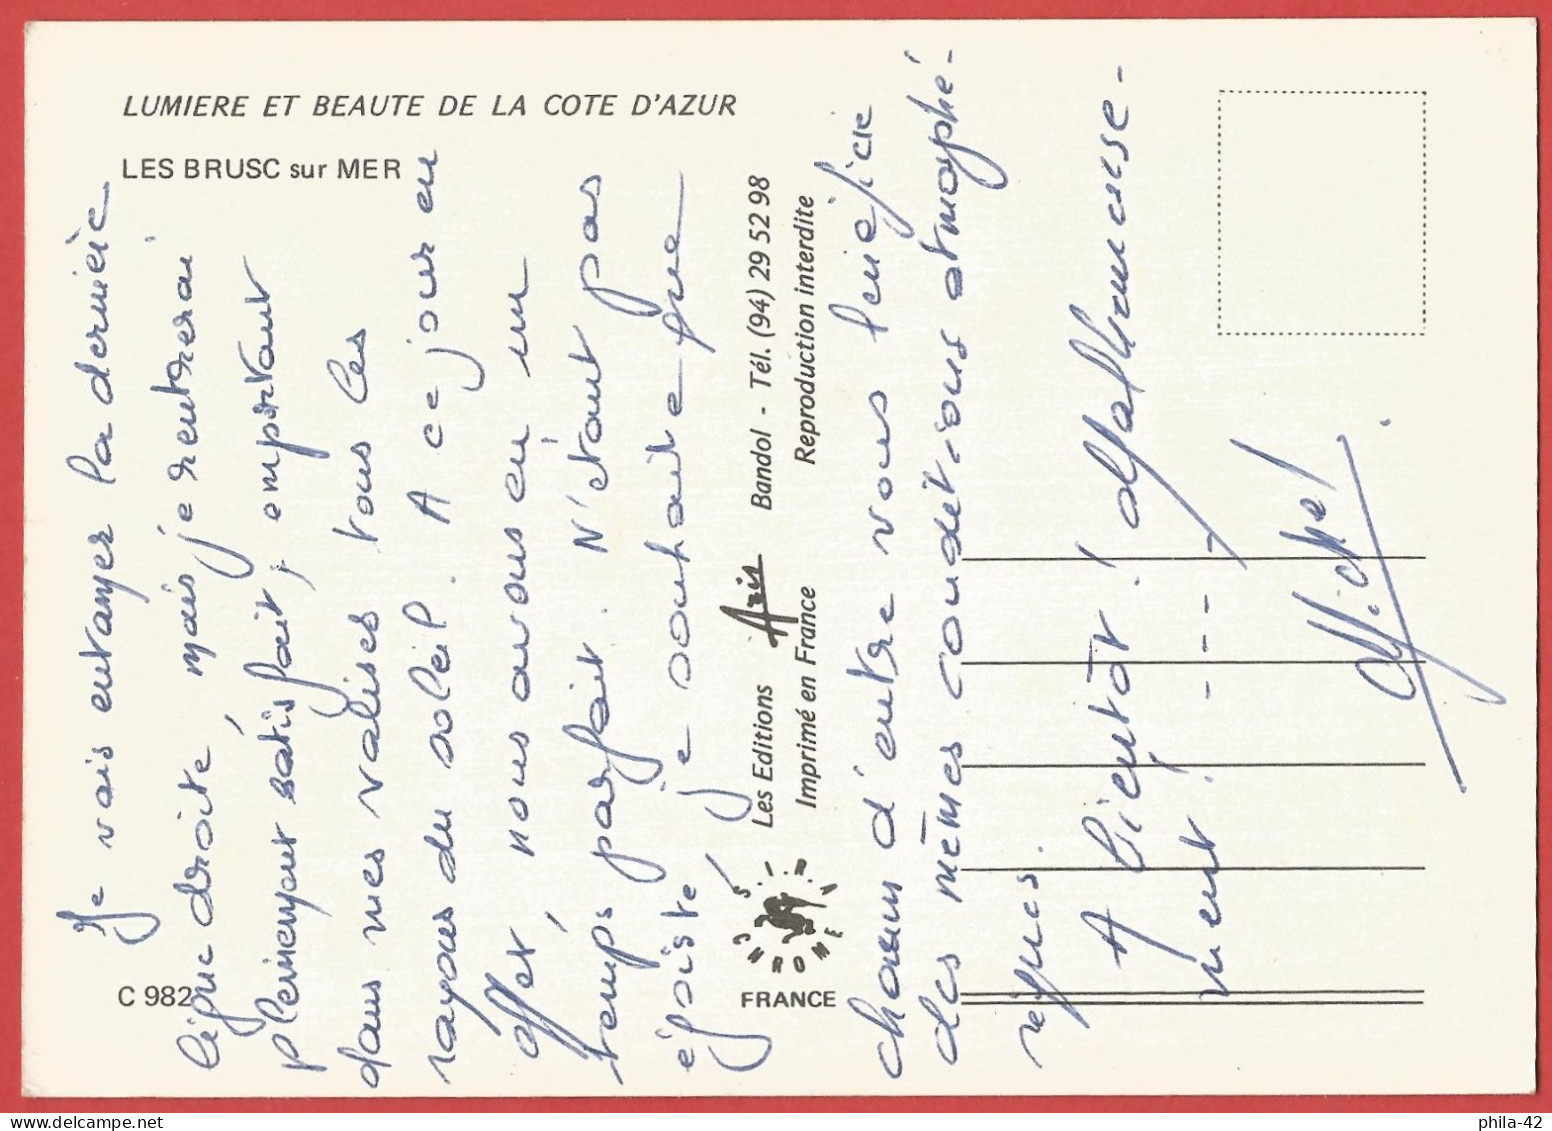 LUMIERE ET BEAUTE DE LA COTE D'AZUR
LES BRUSC sur MER
C 982
Les Editions Aris Bandol - Tél. (94) 29 52 98
Imprimé en France Reproduction interdite
S.I.R.A
CHROME
FRANCE
Je vais entamer la dernière
ligne droite, mais je rentrerai
pleinement satisfait, emportant
dans mes valises tous les
rayons du soleil. A ce jour en
effet, nous avons eu un
temps parfait. N'étant pas
égoïste, je souhaite que
chacun d'entre vous bénéficie
des mêmes conditions atmosphé-
riques.
A bientôt! malheureuse-
ment. - - - -
Michel
phila-42